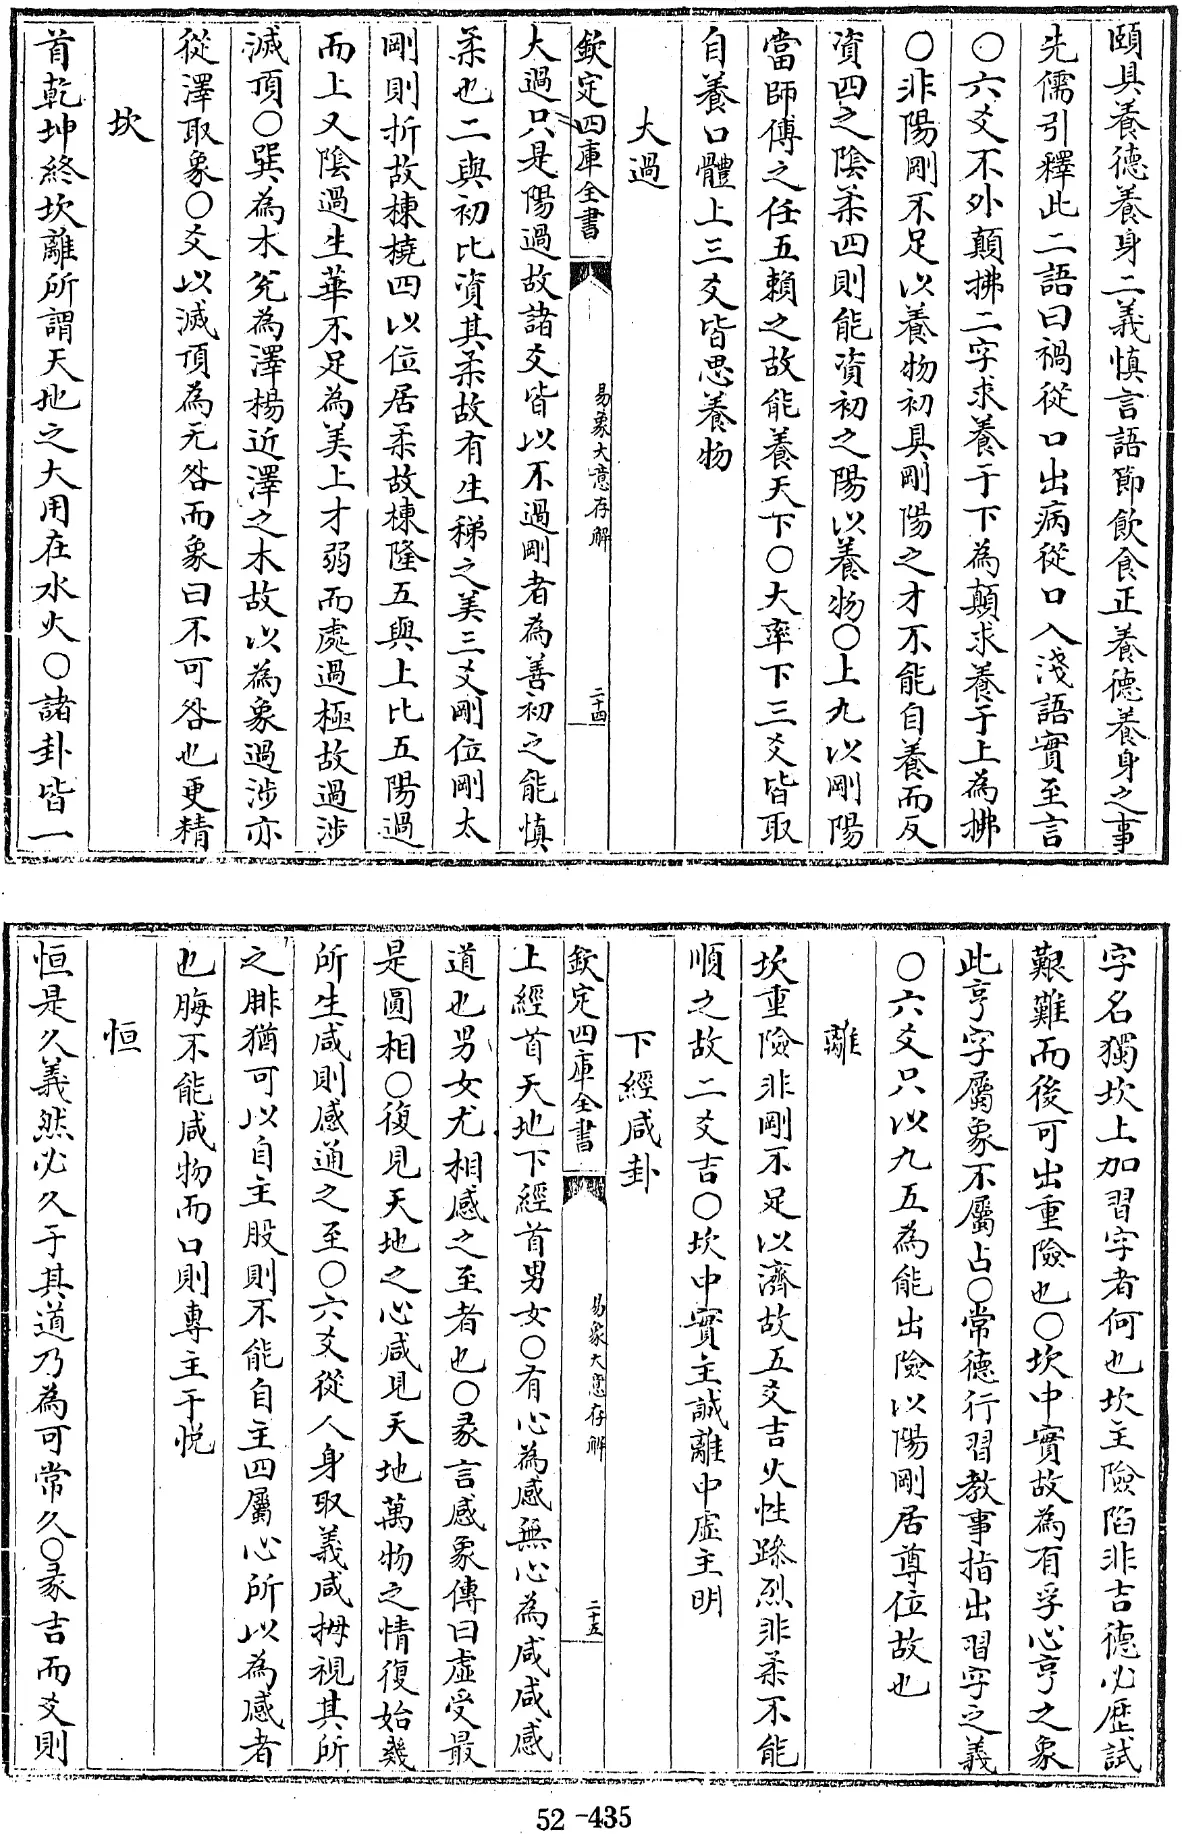 頤具養德養身二義慎言語節飲食正養德養身之事
先儒引釋此二語曰禍從口出病從口入淺語實至言
○六爻不外顛拂二字求養于下為顛求養于上為拂
○非陽剛不足以養物初具剛陽之才不能自養而反
資四之陰柔四則能資初之陽以養物○上九以剛陽
當師傅之任五賴之故能養天下○大率下三爻皆取
自養口體上三爻皆思養物
大過
欽定四庫全書
易象大意存解
二十四
大過只是陽過故諸爻皆以不過剛者為善初之能慎
柔也二與初比資其柔故有生稊之美三爻剛位剛太
剛則折故棟橈四以位居柔故棟隆五與上比五陽過
而上又陰過生華不足為美上才弱而處過極故過涉
滅頂○巽為木兊為澤楊近澤之木故以為象過涉亦
從澤取象○爻以滅頂為无咎而象曰不可咎也更精
坎
首乾坤終坎離所謂天地之大用在水火○諸卦皆一
字名獨坎上加習字者何也坎主險陷非吉德必歷試
艱難而後可出重險也○坎中實故為有孚心亨之象
此亨字屬象不屬占○常德行習教事指出習字之義
○六爻只以九五為能出險以陽剛居尊位故也
離
坎重險非剛不足以濟故五爻吉火性躁烈非柔不能
順之故二爻吉○坎中實主誠離中虛主明
下經咸卦
欽定四庫全書
易象大意存解
二十五
上經首天地下經首男女○有心為感無心為咸咸感
道也男女尤相感之至者也○彖言感象傳曰虛受最
是圓相○復見天地之心咸見天地萬物之情復始幾
所生咸則感通之至○六爻從人身取義咸拇視其所
之腓猶可以自主股則不能自主四屬心所以為感者
也脢不能咸物而口則專主于悅
恒
恒是久義然必久于其道乃為可常久○彖吉而爻則
52-435